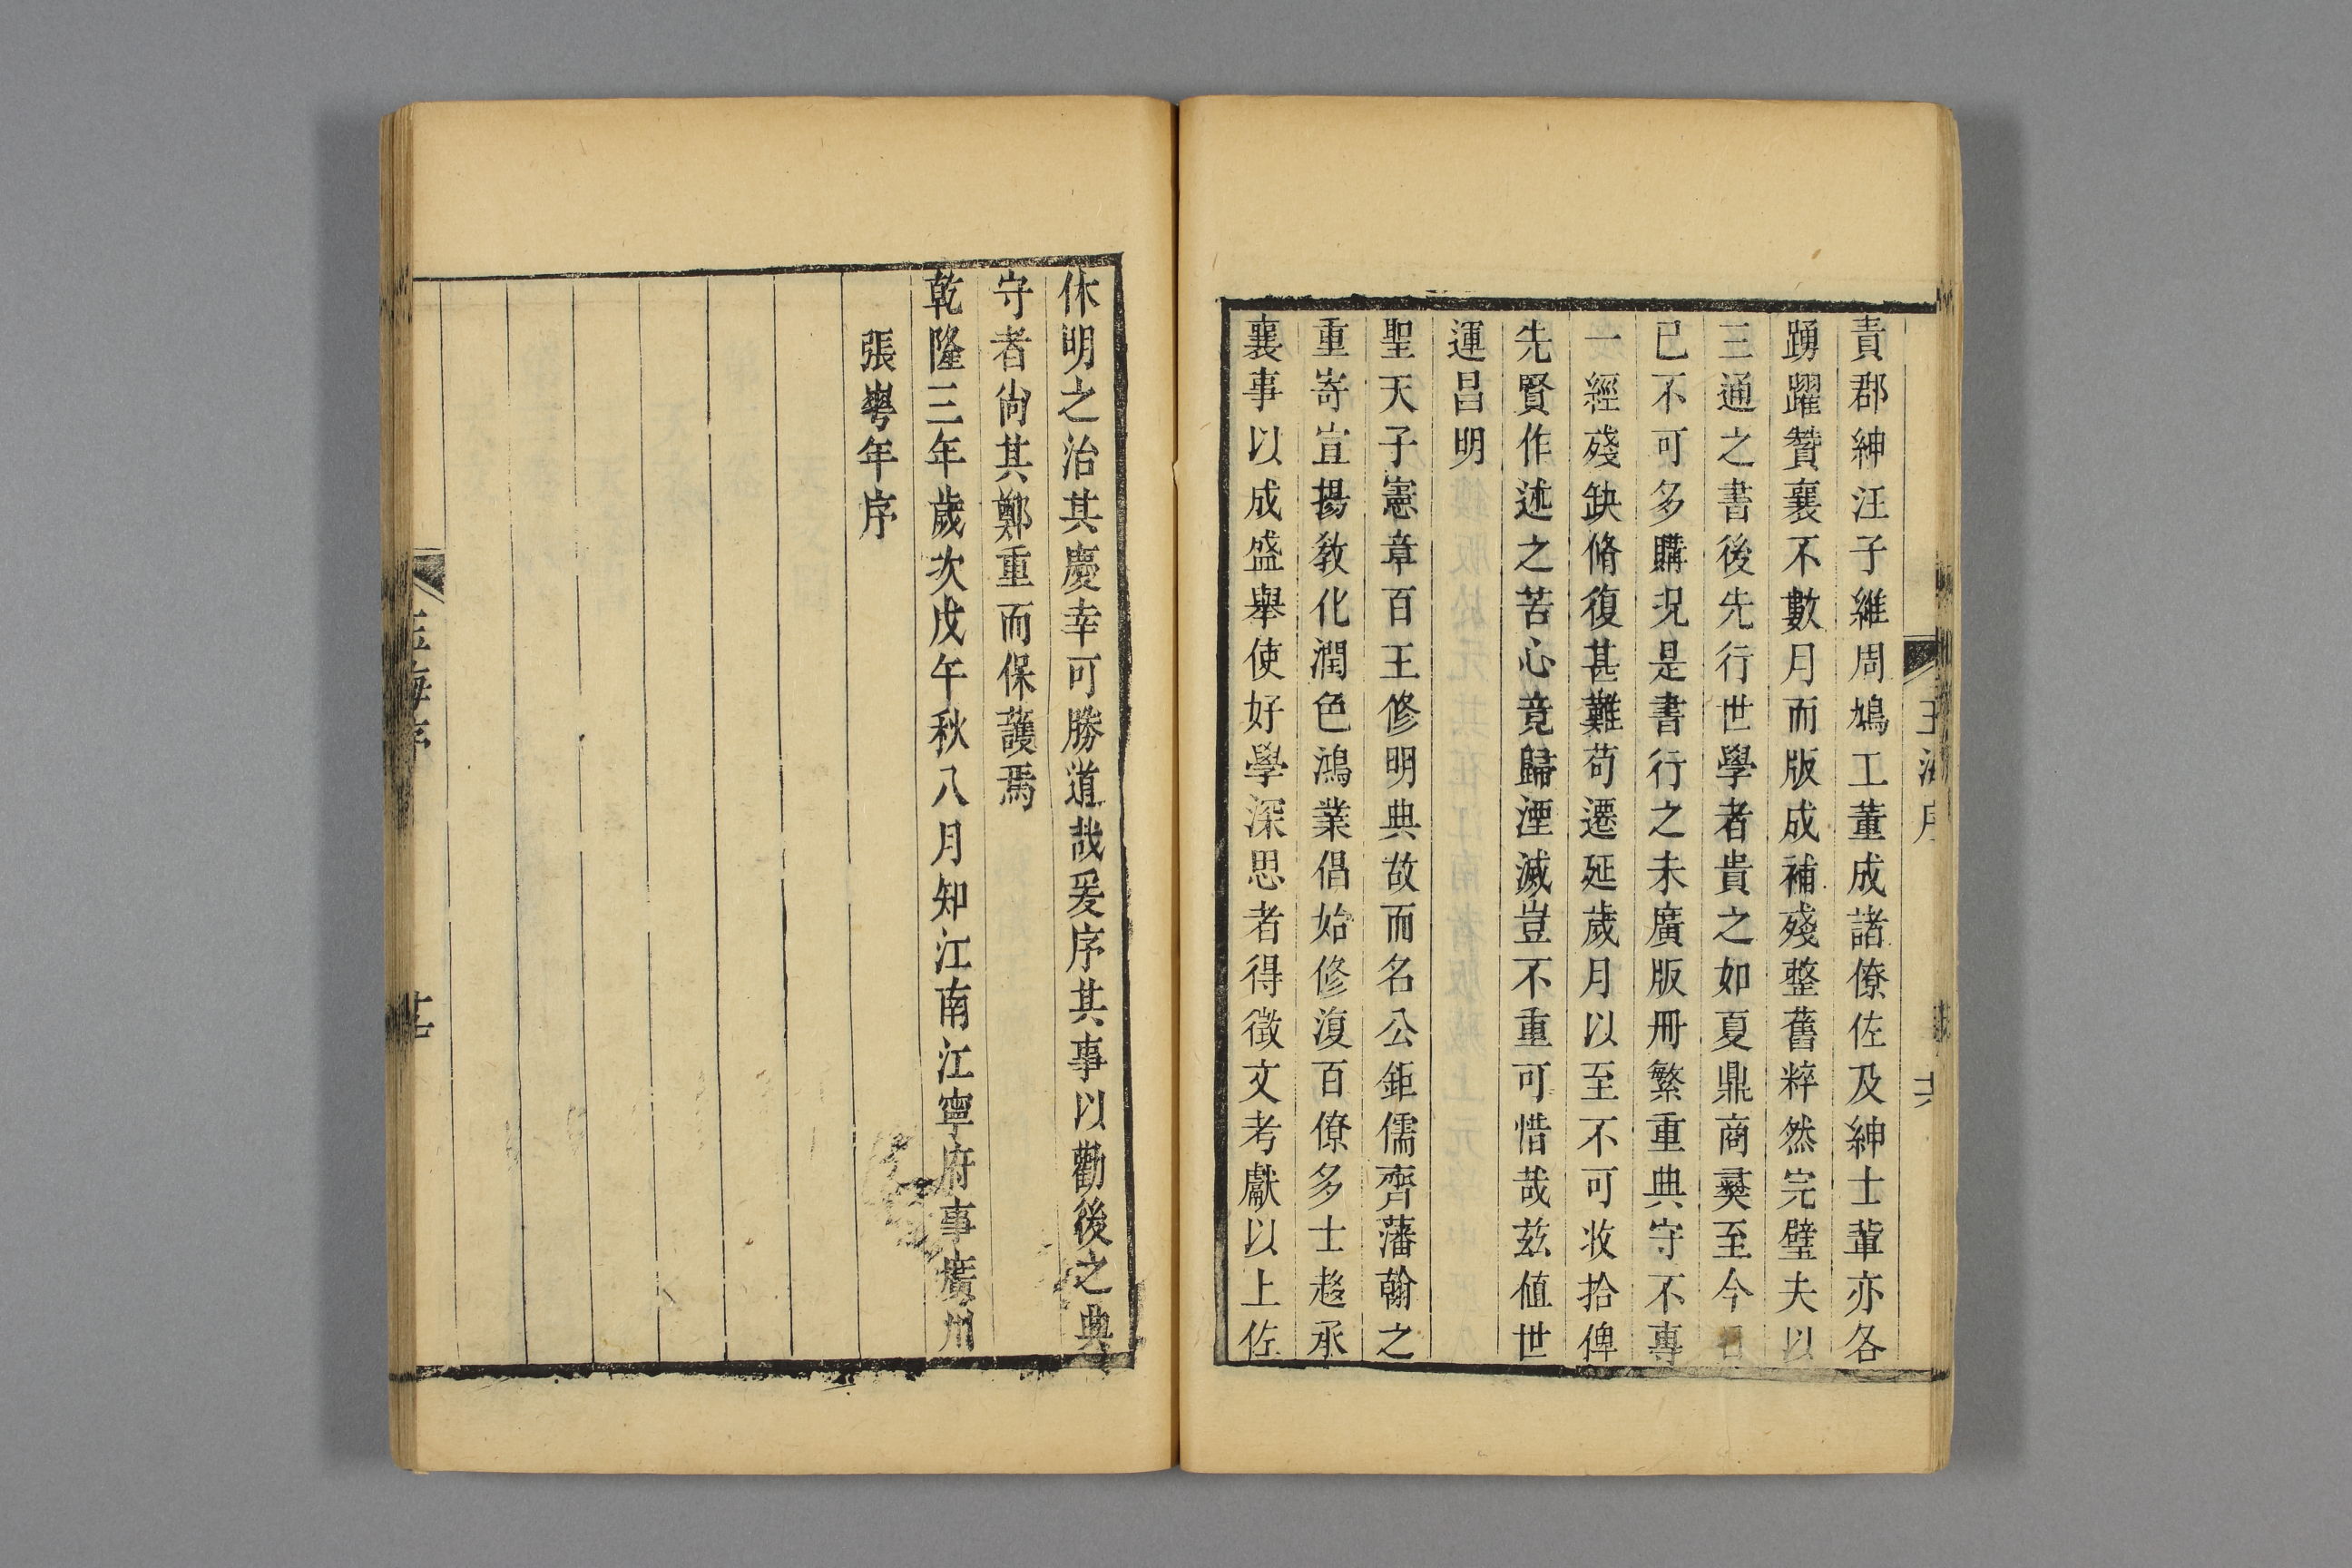 責郡紳汪子維周鳩工董成諸僚佐及紳士軰亦各
踴躍贊襄不數月而版成補殘整舊粹然完璧夫以
三通之書後先行世學者貴之如夏鼎商彛至今日
已不可多購況是書行之未廣版冊繁重典守不專
一經殘缺脩復甚難苟遷延歲月以至不可收拾俾
先賢作述之苦心竟歸湮滅豈不重可惜哉茲値世
運昌明
聖天子憲章百王修明典故而名公鉅儒齊藩翰之
重寄宣揚敎化潤色鴻業倡始修復百僚多士趍承
襄事以成盛舉使好學深思者得徵文考獻以上佐
休明之治其慶幸可勝道哉爰序其事以勸後之典
守者尙其鄭重而保護焉
乾隆三年歲次戊午秋八月知江南江寧府事廣川
張華年序
玉海序